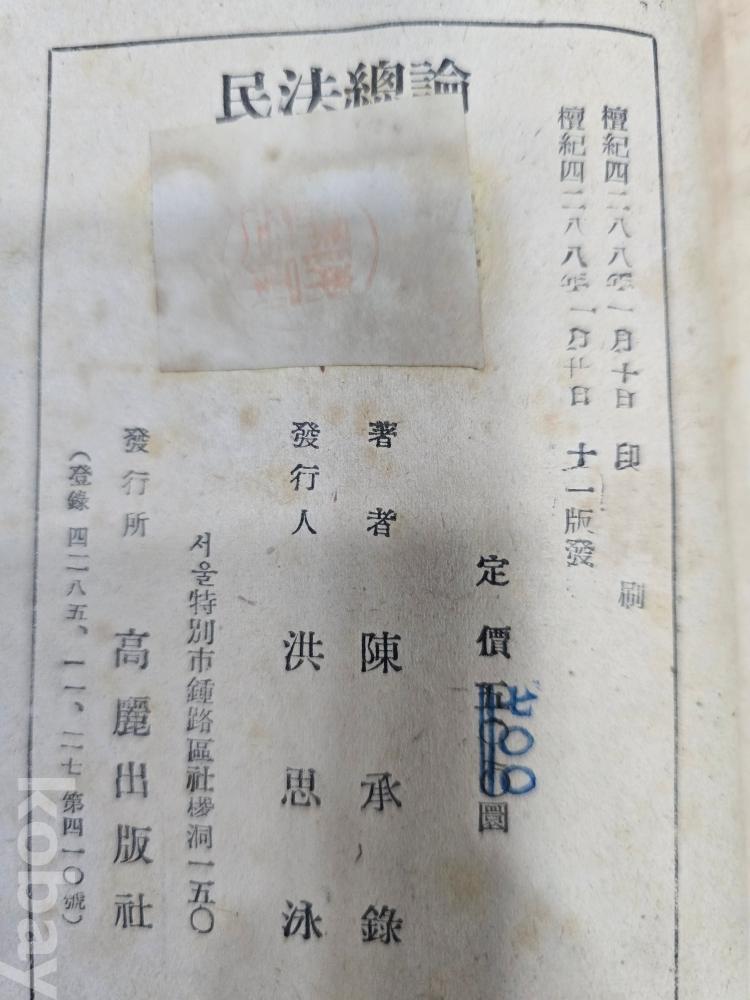 民法總論
檀紀四二八八年一月十日 印刷
檀紀四二八八年一月廿日 十一版發
定價五〇〇圜
七〇〇
著者 陳承錄
發行人 洪思泳
서울特別市鍾路區社稷洞一五〇
發行所 高麗出版社
(登錄 四二八五、一一、二七 第四一〇號)
kobay